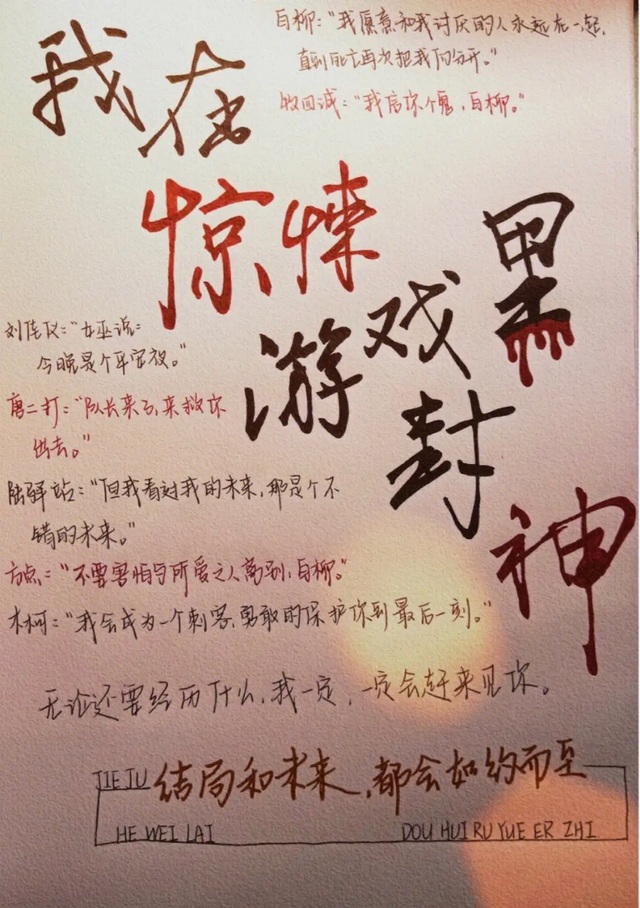 白柳："我愿意和我讨厌的人永远在一起,
直到死亡再次把我们分开。"
牧四诚："我信你个鬼,白柳。"
我在
惊悚
游戏里
封
神
刘佳仪："女巫说:
今晚是个平安夜。"
唐二打："队长来了,来救你
出去。"
陆驿站："但我看过我的未来,那是个不
错的未来。"
方点："不要害怕与所爱之人离别,白柳。"
木柯："我会成为一个刺客,勇敢的保护你到最后一刻。"
无论还要经历什么,我一定,一定会赶来见你。
JIE JU 结局和未来,都会如约而至
HE WEI LAI DOU HUI RU YUE ER ZHI